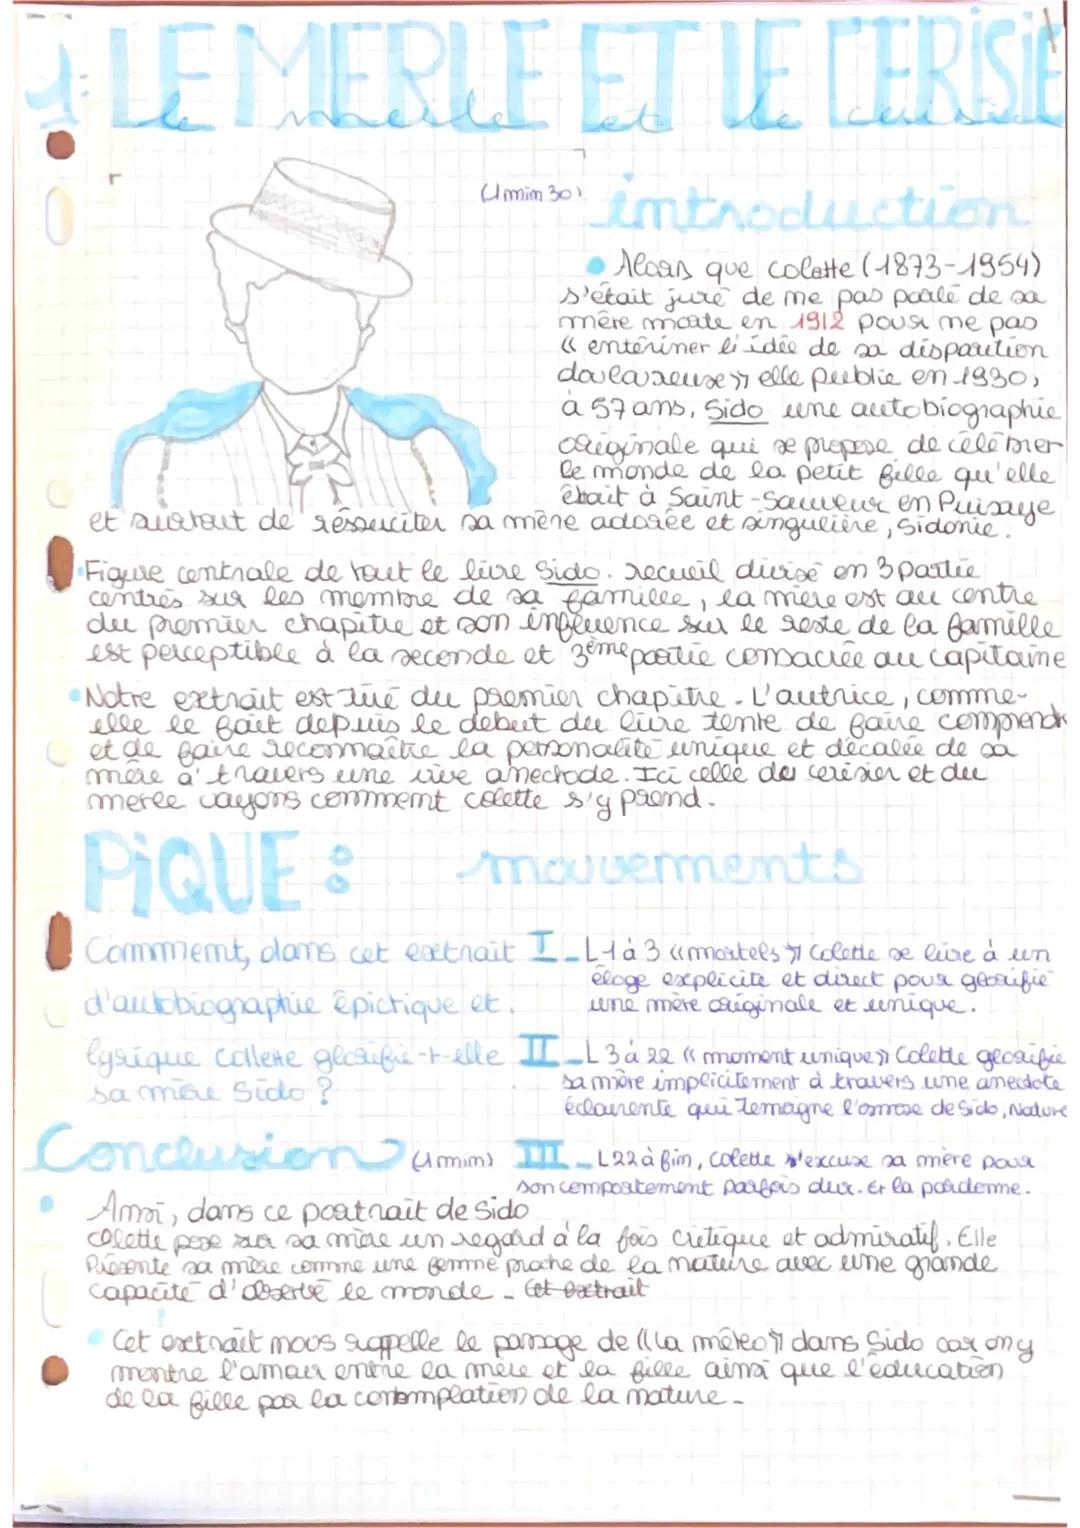 1: LE MERLE ET LE CERISIE
le merle et le cerisier
(1min 30)
introduction
• Alors que colette (1873-1954)
s'était juré de ne pas parlé de sa
mère morte en 1912 pour ne pas
« entériner l'idée de sa disparition
douloureuse » elle publie en 1930,
à 57 ans, Sido une autobiographie
originale qui se propose de célébrer
le monde de la petit fille qu'elle
était à Saint-Sauveur en Puisaye
et surtout de réssuciter sa mère adorée et singulière, Sidonie.
• Figure centrale de tout le livre Sido. recueil divisé en 3 partie
centrés sur les membre de sa famille, la mère est au centre
du premier chapitre et son influence sur le reste de la famille
est perceptible à la seconde et 3ème partie consacrée au capitaine
• Notre extrait est tiré du premier chapitre. L'autrice, comme
elle le fait depuis le debut du livre tente de faire comprendre
et de faire reconnaître la personalité unique et décalée de sa
mère à travers une vive anectode. Ici celle du cerisier et du
merle voyons comment colette s'y prend.
PiQUE : mouvements
Comment, dans cet extrait
d'autobiographie épictique et
lyrique Collette glorifie-t-elle
sa mère Sido ?
I - L1 à 3 « mortels » Colette se livre à un
éloge explicite et direct pour glorifié
une mère originale et unique.
II - L3 à 22 « moment unique » Colette glorifie
sa mère implicitement à travers une anecdote
éclairente qui témoigne l'osmose de Sido, Nature
III - L22 à fin, colette s'excuse sa mère pour
son comportement parfois dur. Et la pardonne.
Conclusion (1min)
• Ainsi, dans ce portrait de Sido
colette pose sur sa mère un regard à la fois critique et admiratif. Elle
Présente sa mère comme une femme proche de la nature avec une grande
capacité d'observé le monde - Cet extrait
• Cet extrait nous rappelle le passage de « la météo » dans Sido car on y
montre l'amour entre la mère et la fille ainsi que l'éducation
de la fille par la contemplation de la nature -